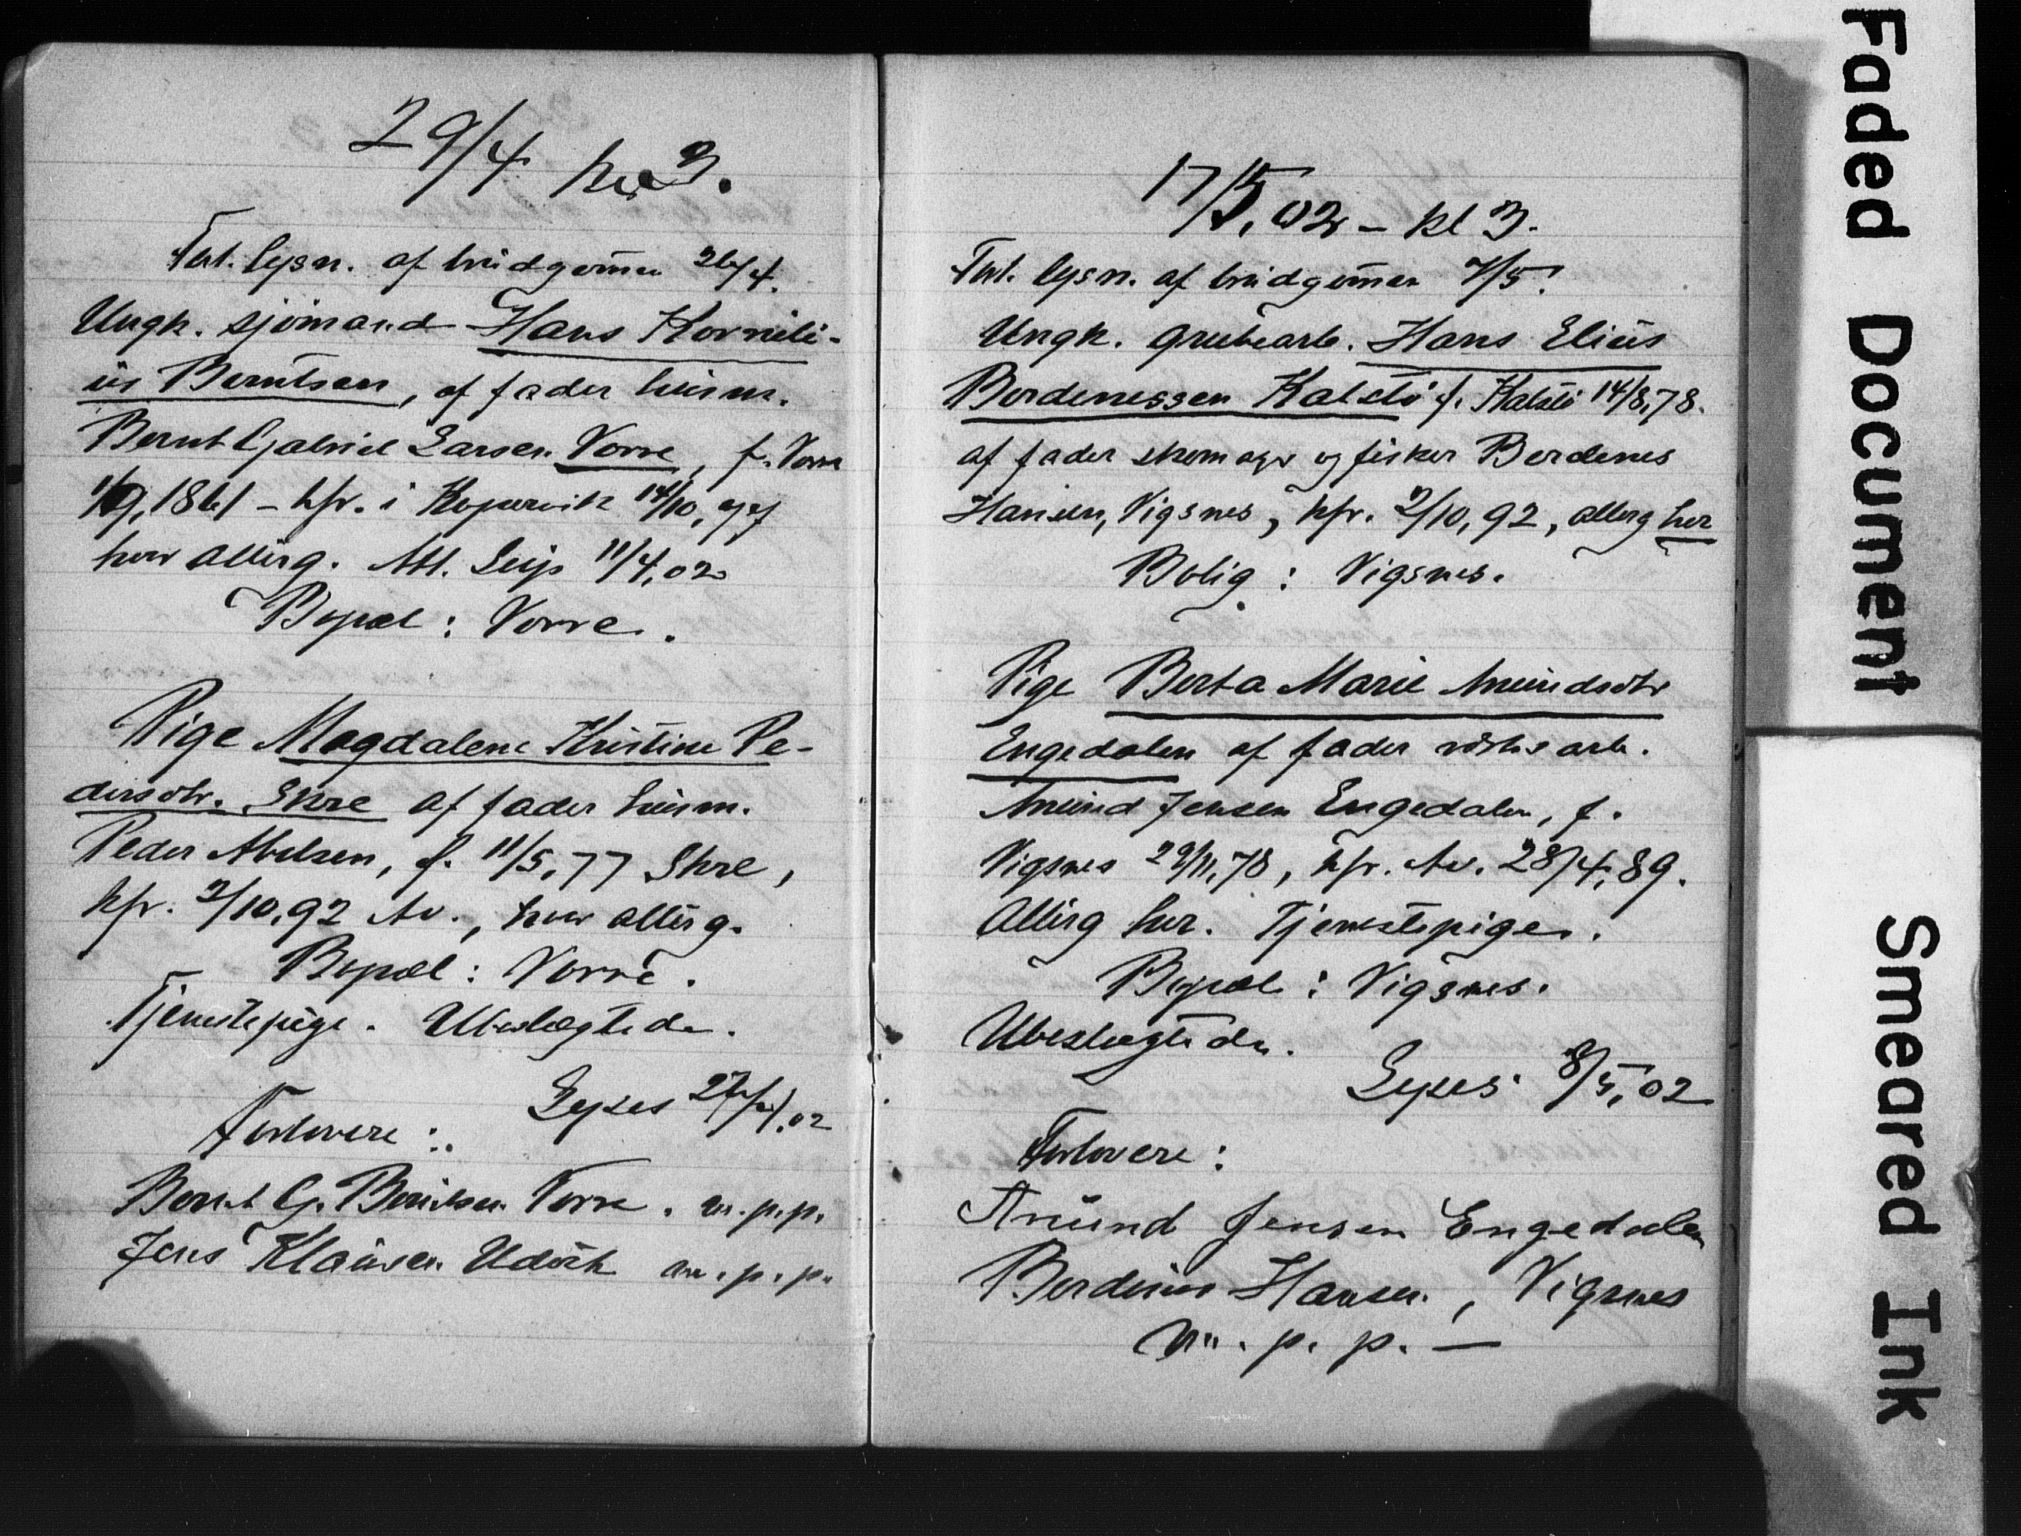 29/4 kl 3.
Forl. lysn. af brudgommen 26/4.
Ungk. sjömand Hans Korneli-
us Berntsen, af fader husm.
Bernt Gabriel Larsen Vorre, f. Vorre
1/9, 1861 – kfr. i Kopervik 14/10, og ef
hvor alterg. Att. Leip 11/4,02
Bopæl : Vorre.
Pige Magdalene Kristine Pe-
dersdtr. Skre af fader husm.
Peder Abelsen, f. 11/5,77 Skre,
kfr. 2/10,92 Av., hvor alterg.
Bopæl : Vorre.
Tjenestepige. Ubeslægtede.
Lyses 27/4,02
Forlovere :
Bernt G. Berntsen Vorre. m.p.p.
Jens Klausen Udvik m.p.p.
17/5,02 – kl 3.
Forl. lysn. af brudgommen 7/5.
Ungk. grubearb. Hans Elius
Berdenessen Kalstö f. Kalstö 14/8,78.
af fader skomager og fisker Berdenes
Hansen, Vigsnes, kfr. 2/10,92, alterg her
Bolig : Vigsnes.
Pige Berta Marie Amundsdtr
Engedalen af fader værksarb.
Amund Jensen Engedalen, f.
Vigsnes 22/11,78, kfr. Av. 28/4,89.
Alterg her. Tjenestepige.
Bopæl : Vigsnes.
Ubeslægtede.
Lyses 8/5,02
Forlovere :
Amund Jensen Engedalen
Berdinus Hansen, Vigsnes
m.p.p. —
Faded Document
Smeared Ink